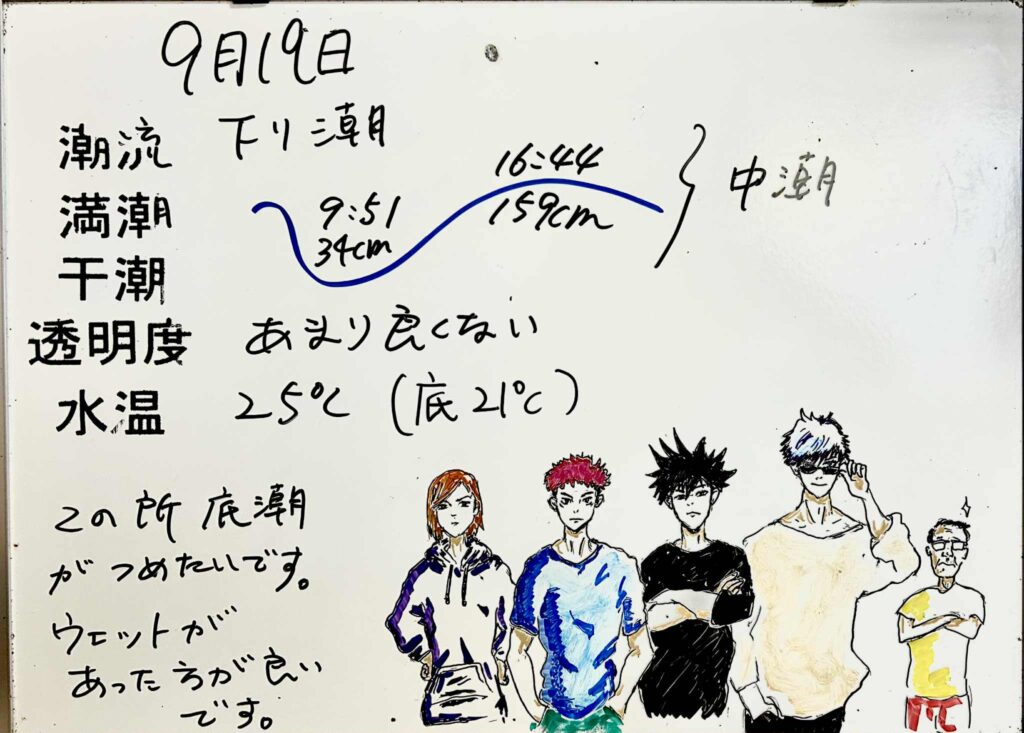 9月19日
潮流 下り潮
満潮 9:51 16:44
34cm 159cm 中潮
干潮
透明度 あまり良くない
水温 25℃ (底21℃)
この所 底潮
がつめたいです。
ウェットが
あった方が良い
です。